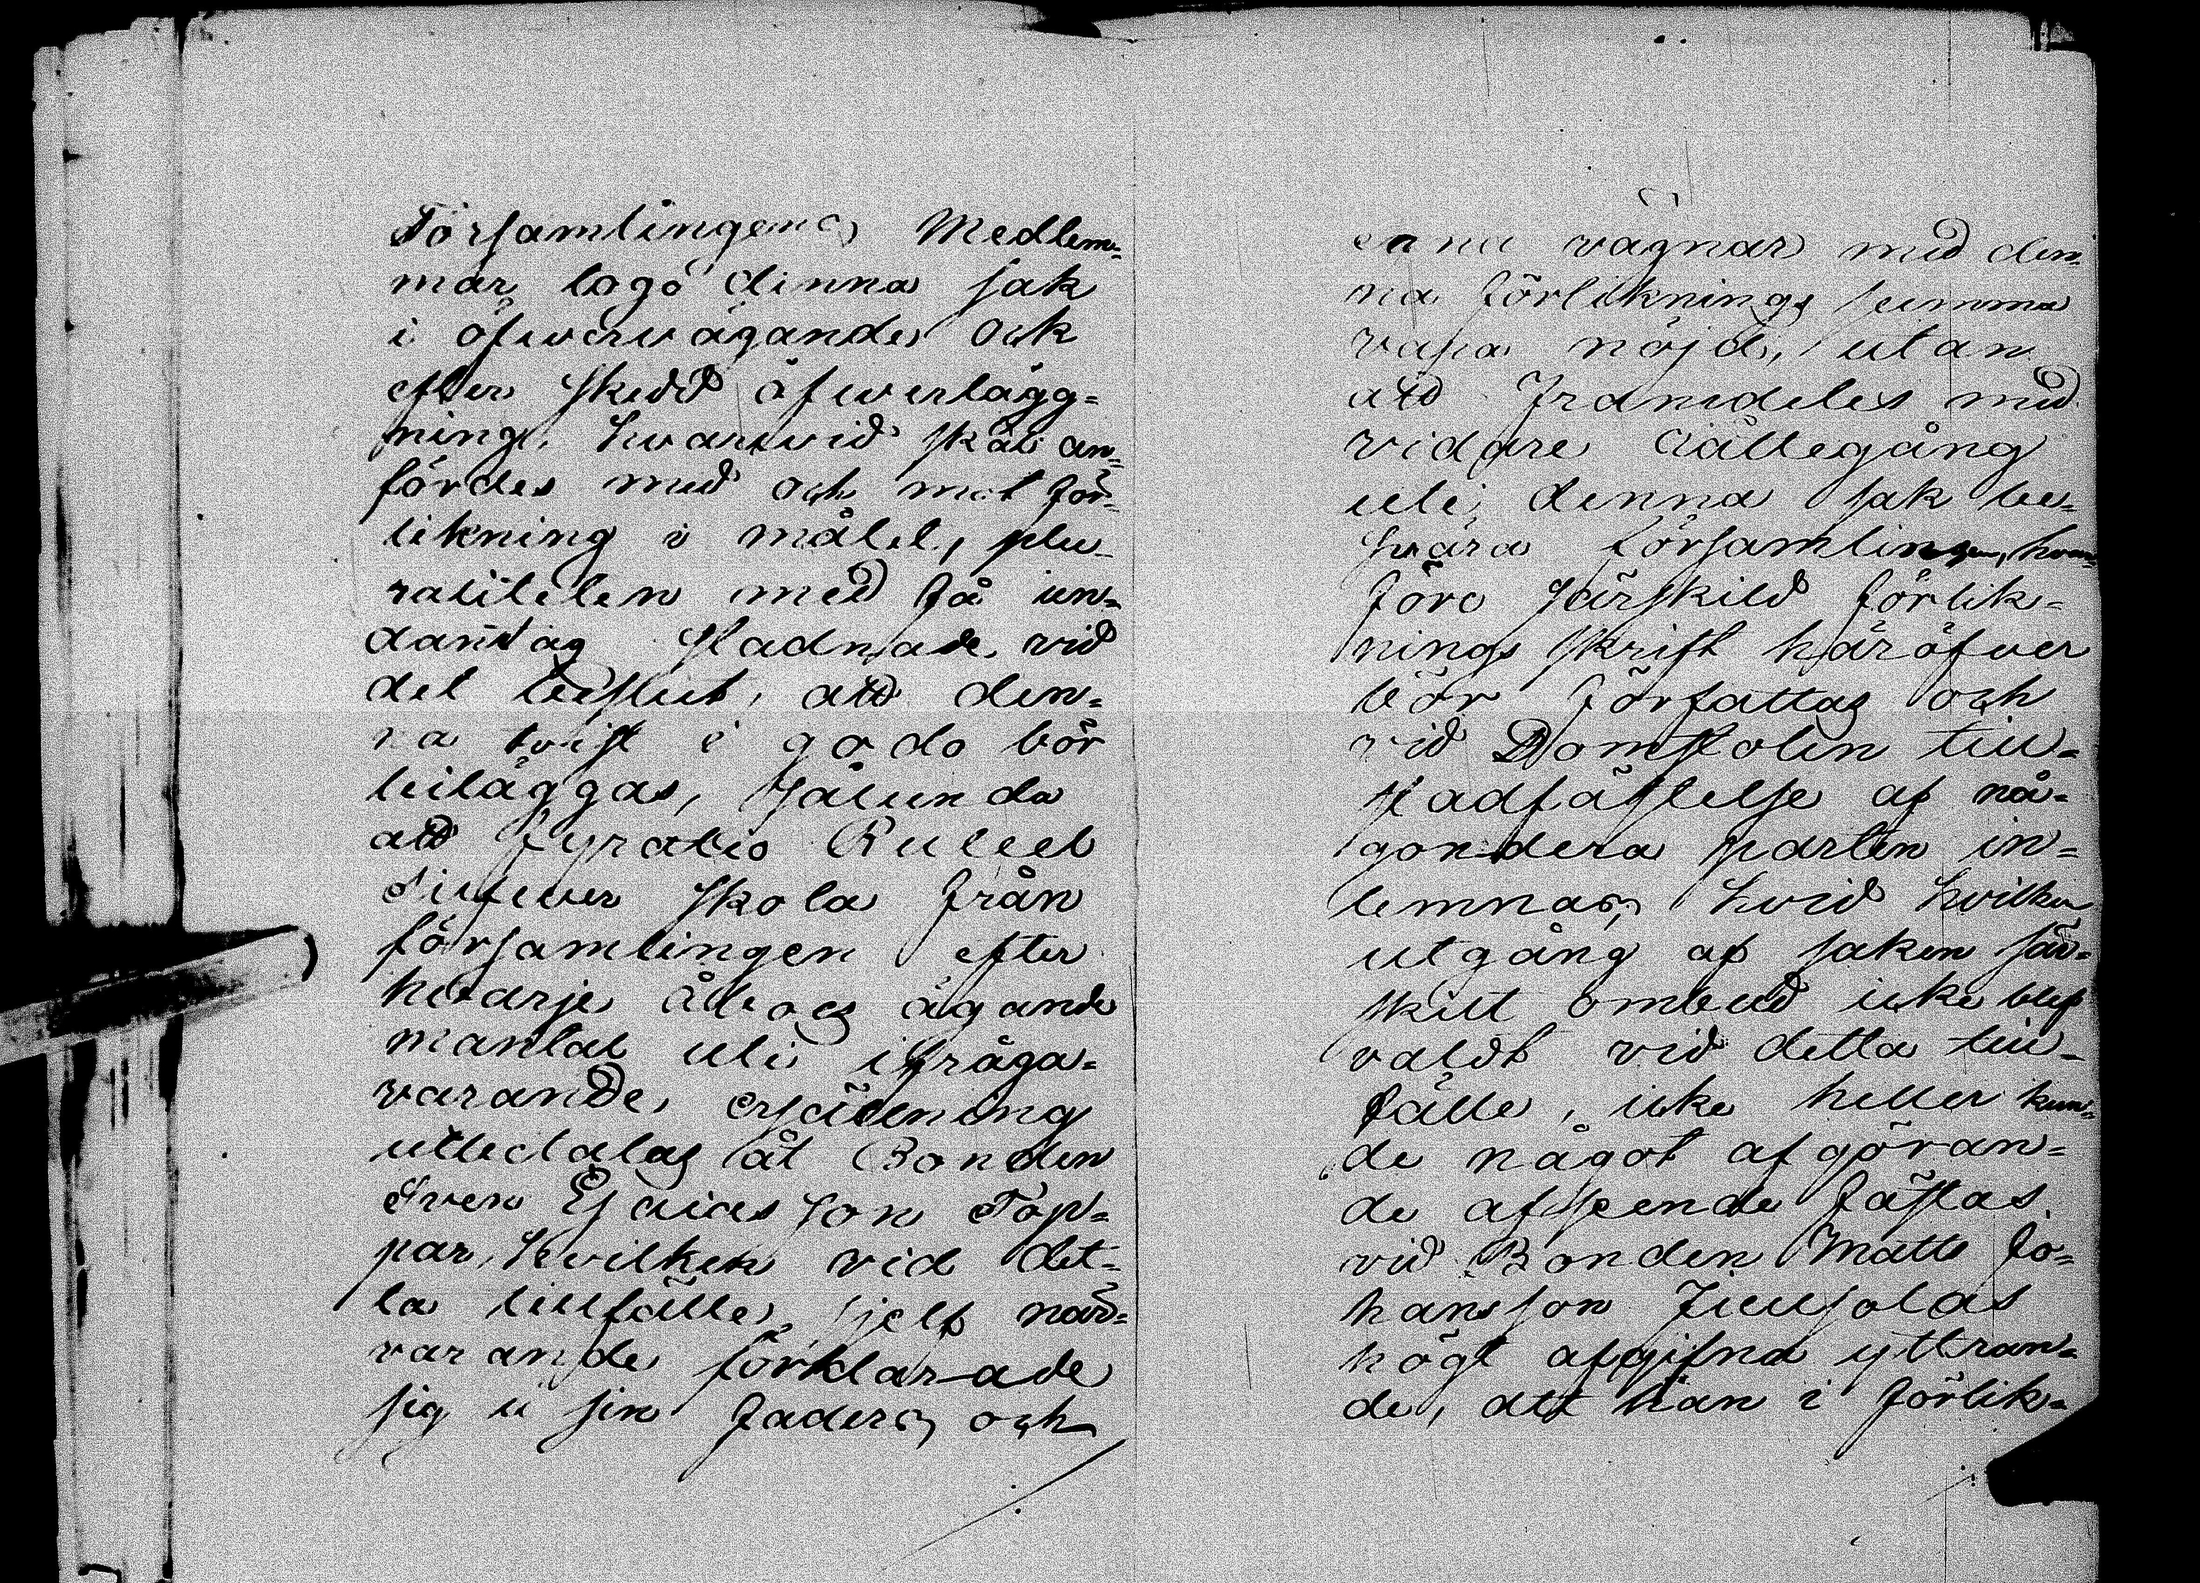 Församlingens Medlem-
mar togo denna sak
i öfwerwägande och
efter skedd öfwerlägg-
ning, hwarwid skäl an-
fördes med och mot för-
likning i målet, plu-
raliteten med få un-
dantag stadnade vid
det beslut, att den-
na twist i godo bör
biläggas, sålunda
att fyratio Rubel
Silfwer skola från
församlingen efter
hwarje åboes ägande
mantal uti ifråga-
varande ersättning
utbetalas åt Bonden
Sven Esaias son Töp-
par, hvilken vid det-
ta tillfälle sjelf när-
varande förklarade
sig i sin faders och
egna vägnar med den-
na förliknings summa
vara nöjd, utan
att framdeles med
vidare rättegång
uti denna sak be-
swära församlingen, hvar-
före särskild förlik-
nings skrift häröfver
bör författas och
vid Domstolen till
stadfästelse af nå-
gondera parten in-
lemnas, hvid hvilken
utgång af saken sär-
skilt ombud icke blef
valdt vid detta till-
fälle, icke heller kun-
de något afgöran-
de afseende fästas
vid Bonden Matts Jo-
hansson
högt afgifna yttran-
de, att han i förlik-